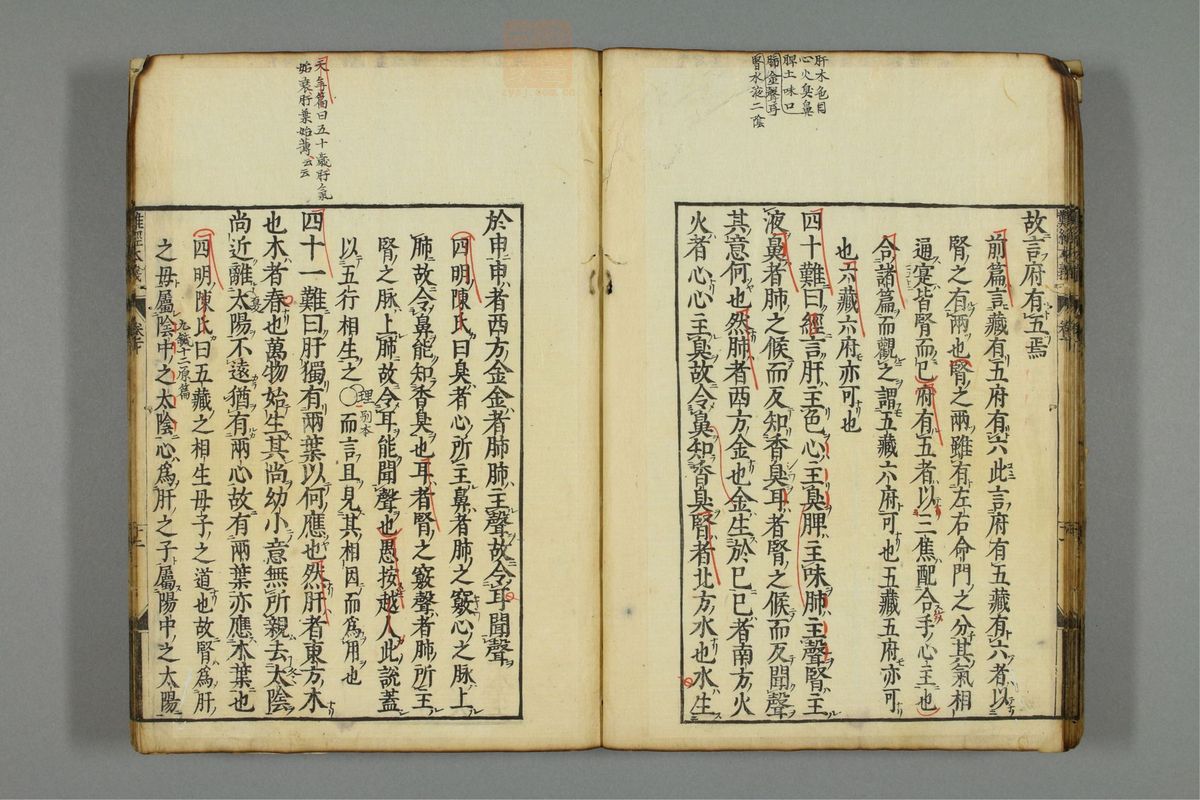 肝木色目
心火臭鼻
脾土味口
肺金聲耳
腎水液二陰
故言府有五焉
前篇言藏有五府有六此言府有五藏有六者以
腎之有兩也腎之兩雖有左右命門之分其氣相
通寔皆腎而已府有五者以三焦配合手心主也
合諸篇而觀之謂五藏六府可也五藏五府亦可
也六藏六府亦可也
四十難曰經言肝主色心主臭脾主味肺主聲腎主
液鼻者肺之候而反知香臭耳者腎之候而反聞聲
其意何也然肺者西方金也金生於巳巳者南方火
火者心心主臭故令鼻知香臭腎者北方水也水生
天年篇曰五十歲肝氣
始衰肝葉始薄云云
於申申者西方金金者肺肺主聲故令耳聞聲
四明陳氏曰臭者心所主鼻者肺之竅心之脉上
肺故令鼻能知香臭也耳者腎之竅聲者肺所主
腎之脉上肺故令耳能聞聲也愚按越人此說蓋
以五行相生之〇理而言且見其相因而爲用也
四十一難曰肝獨有兩葉以何應也然肝者東方木
也木者春也萬物始生其尚幼小意無所親去太陰
尚近離太陽不遠猶有兩心故有兩葉亦應木葉也
四明陳氏曰五藏之相生母子之道也故腎爲肝
九鍼十二原篇
之母屬陰中之太陰心爲肝之子屬陽中之太陽